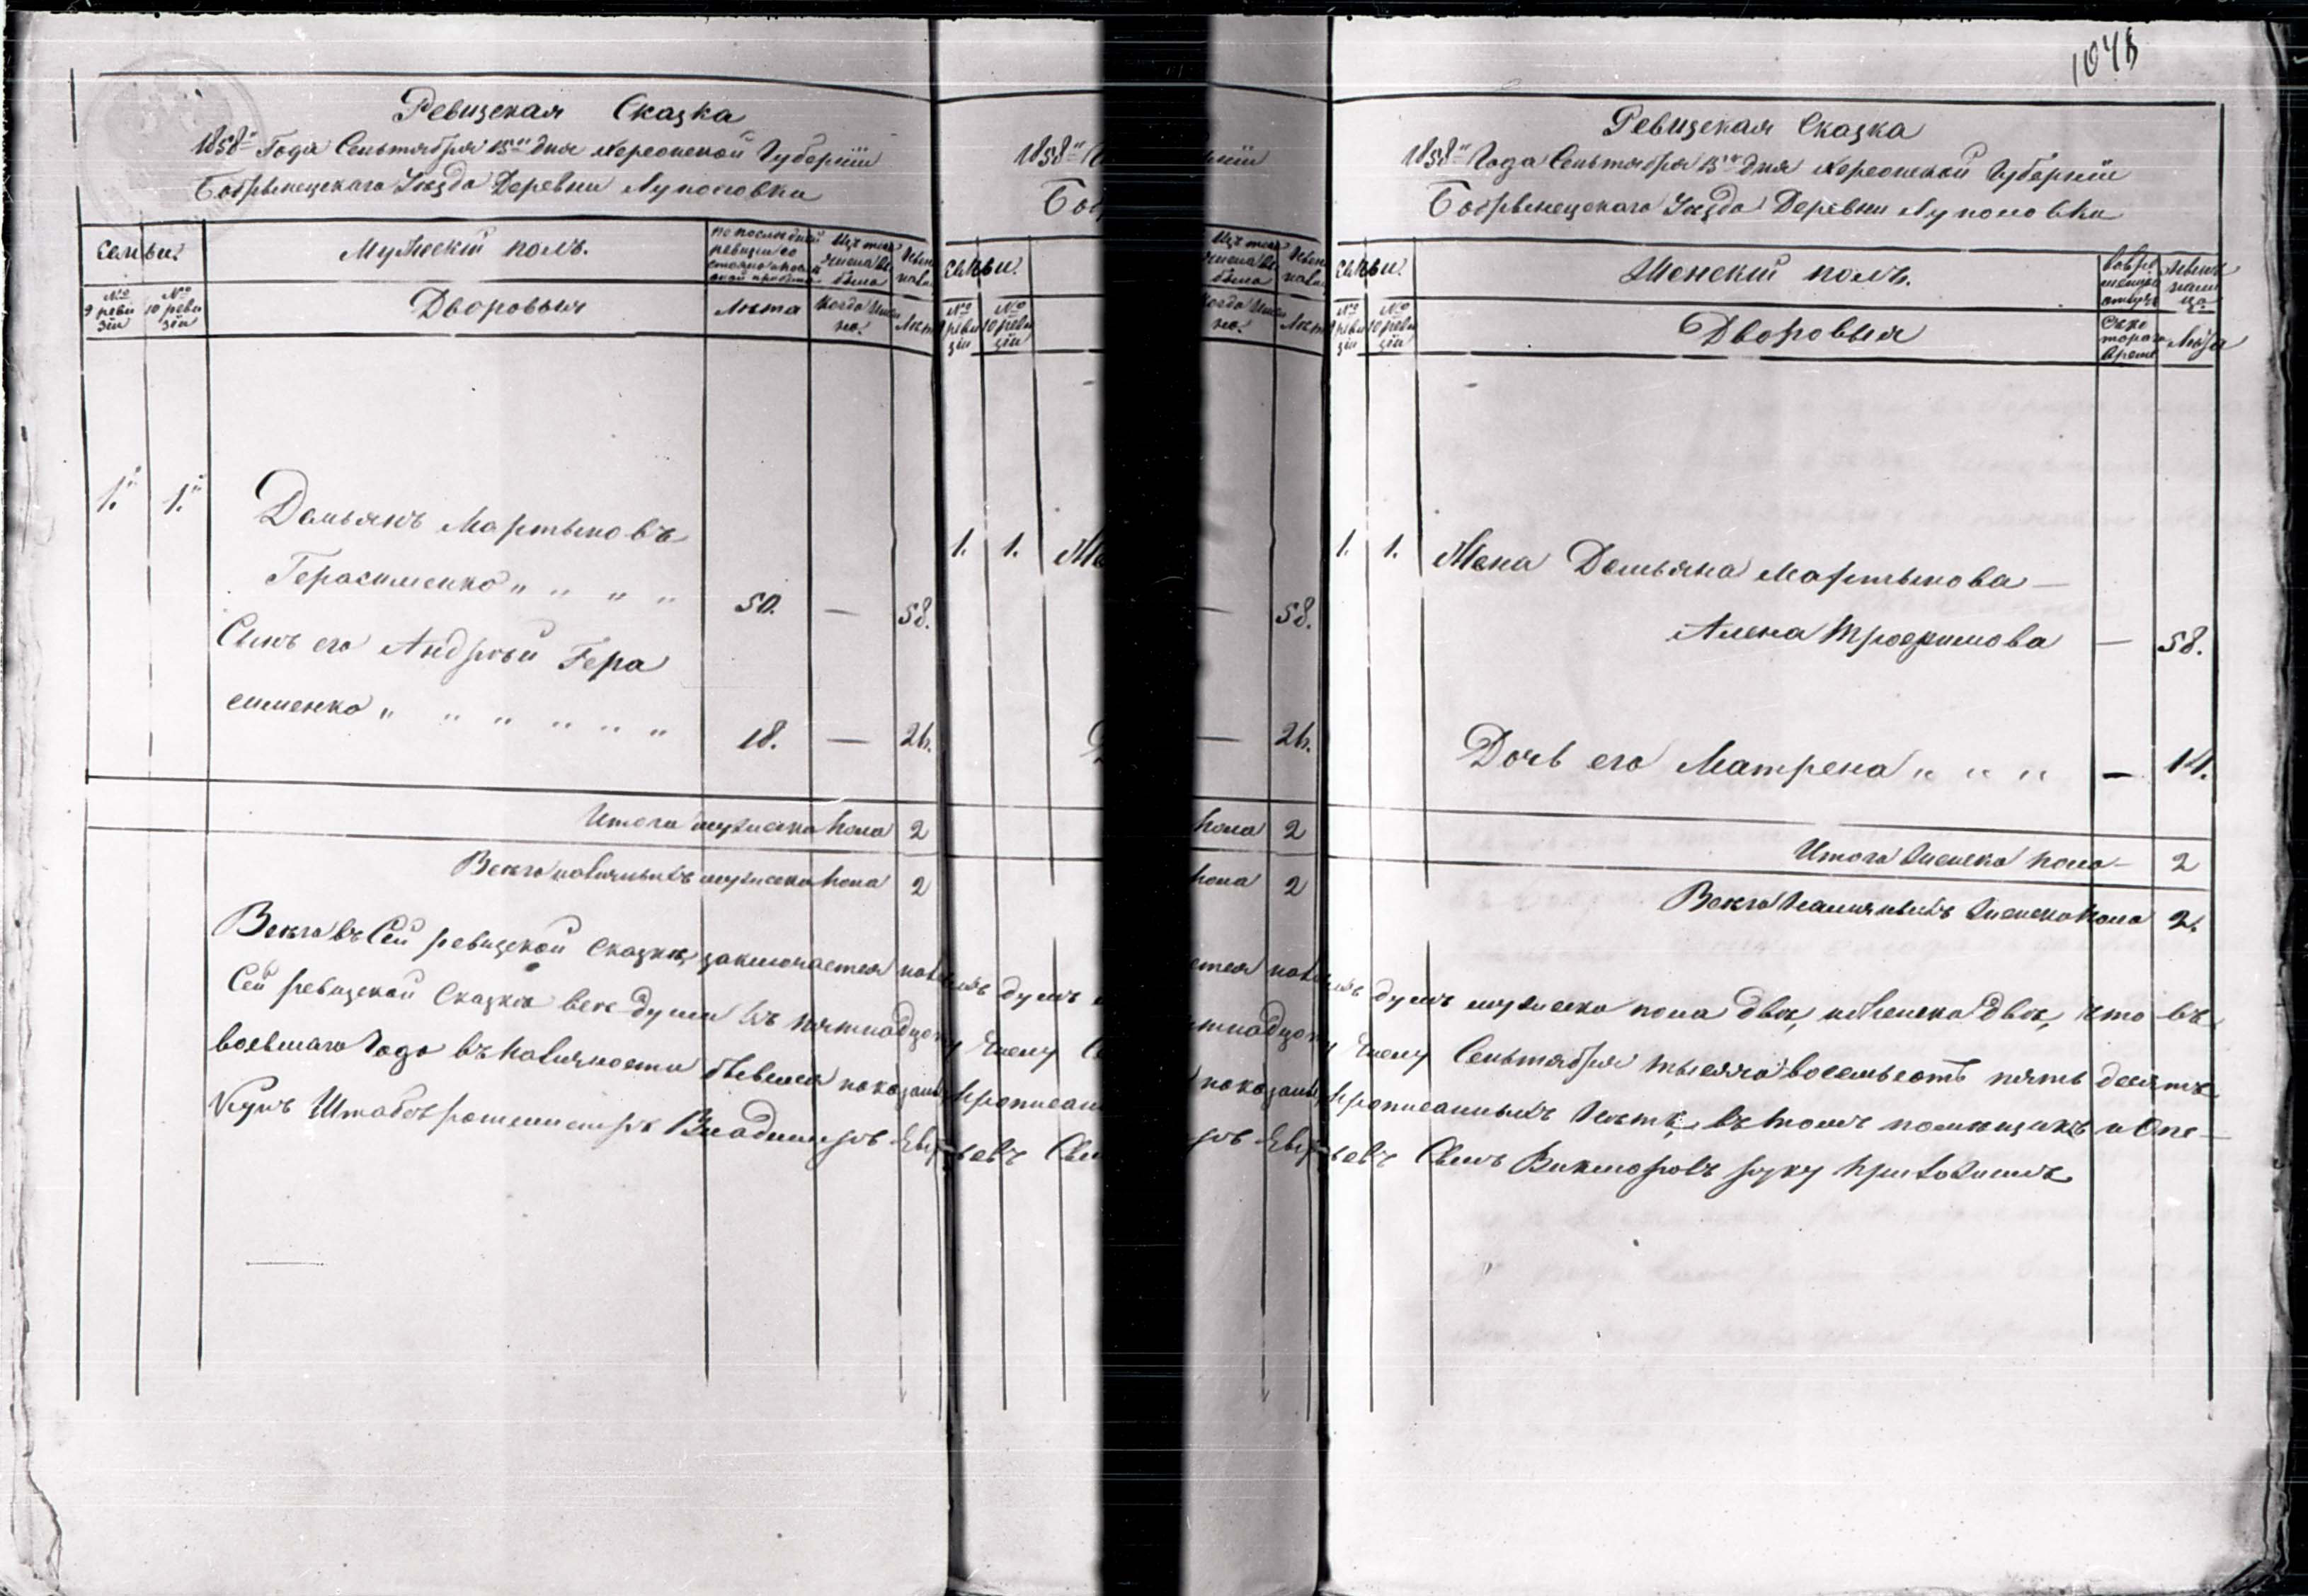 Ревизская Сказка
1858го Года Сентября 15го дня Херсонской Губернiи
Бобринецкаго Уѣзда Деревни Луполовки
Семьи.
Мужескiй полъ.
По последней ревизiи состояло и после оной прибыло
Изъ того числа выбыло
Ныне налицо
№ 9 реви зiи
№ 10 реви зiи
Дворовыя
Лѣта
Когда именно.
Лѣта
1. 1.
Демьянъ Мартыновъ
Герасименко " " " " 50. — 58.
Сынъ его Андрѣй Гера
сименко " " " " " " 18. — 26.
Итого мужеска пола 2
Всего наличныхъ мужеска пола 2
1048
Ревизская Сказка
1858го Года Сентября 15го дня Херсонской Губернiи
Бобринецкаго Уѣзда Деревни Луполовки
Семьи.
Женскiй полъ.
Во временной отлучке
Ныне налицо
№ 9 реви зiи
№ 10 реви зiи
Дворовыя
Съ котораго време
Лѣта
1. 1. Жена Демьяна Мартынова —
Алена Трофимова — 58.
Дочь его Матрена " " " — 14.
Итого женска пола — 2
Всего наличныхъ женска пола 2.
Всего въ Сей ревизской Сказкѣ заключается наличныхъ душъ мужеска пола двѣ, и женска двѣ, что въ
Сей ревизской Сказкѣ все души къ пятнадцатому числу Сентября тысяча восемьсотъ пять десятъ
восьмаго Года въ наличности бывшiя показаны, прописанныхъ лѣтъ, въ томъ помещикъ и Опе—
кунъ Штабсъ ротмистръ Владимiръ Сынъ Викторовъ руку приложилъ